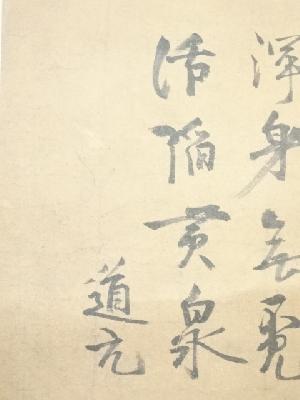 渾身無覓
活陥黄泉
道元